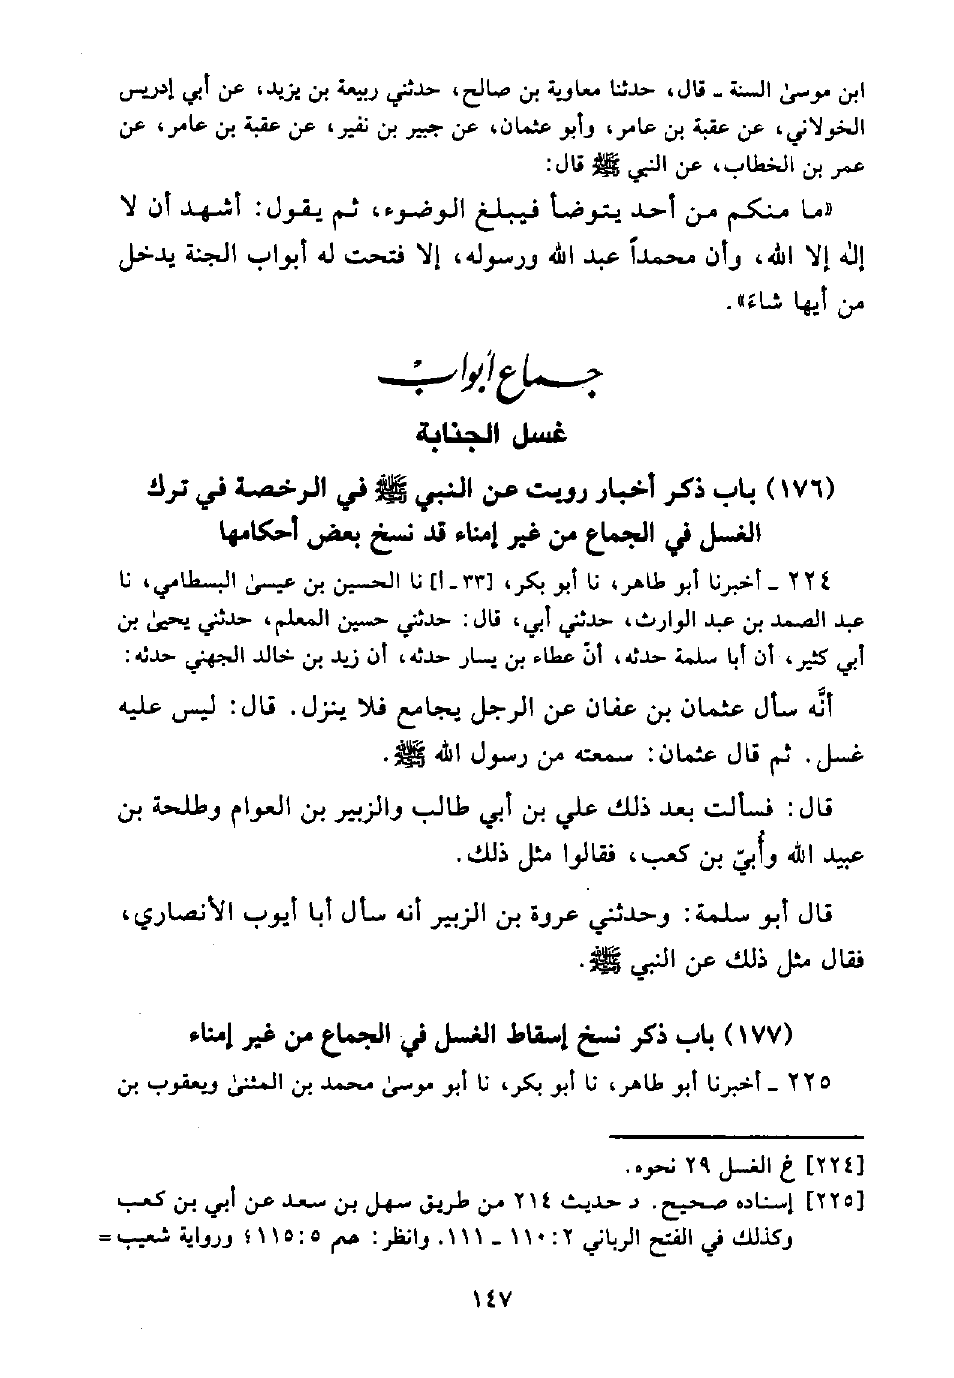 ابن موسىٰ السنة ـ قال، حدثنا معاوية بن صالح، حدثني ربيعة بن يزيد، عن أبي إدريس
الخولاني، عن عقبة بن عامر، وأبو عثمان، عن جبير بن نفير، عن عقبة بن عامر، عن
عمر بن الخطاب، عن النبي ﷺ قال:
«ما منكم من أحد يتوضأ فيبلغ الوضوء، ثم يقول: أشهد أن لا
إلٰه إلا الله، وأن محمداً عبد الله ورسوله، إلا فتحت له أبواب الجنة يدخل
من أيها شاءَ».
جماع أبواب
غسل الجنابة
(١٧٦) باب ذكر أخبار رويت عن النبي ﷺ في الرخصة في ترك
الغسل في الجماع من غير إمناء قد نسخ بعض أحكامها
٢٢٤ ـ أخبرنا أبو طاهر، نا أبو بكر، [٣٣ ـ أ] نا الحسين بن عيسىٰ البسطامي، نا
عبد الصمد بن عبد الوارث، حدثني أبي، قال: حدثني حسين المعلم، حدثني يحيىٰ بن
أبي كثير، أن أبا سلمة حدثه، أنّ عطاء بن يسار حدثه، أن زيد بن خالد الجهني حدثه:
أنَّه سأل عثمان بن عفان عن الرجل يجامع فلا ينزل. قال: ليس عليه
غسل. ثم قال عثمان: سمعته من رسول الله ﷺ.
قال: فسألت بعد ذلك علي بن أبي طالب والزبير بن العوام وطلحة بن
عبيد الله وأُبيّ بن كعب، فقالوا مثل ذلك.
قال أبو سلمة: وحدثني عروة بن الزبير أنه سأل أبا أيوب الأنصاري،
فقال مثل ذلك عن النبي ﷺ.
(١٧٧) باب ذكر نسخ إسقاط الغسل في الجماع من غير إمناء
٢٢٥ ـ أخبرنا أبو طاهر، نا أبو بكر، نا أبو موسىٰ محمد بن المثنىٰ ويعقوب بن
[٢٢٤] خ الغسل ٢٩ نحوه.
[٢٢٥] إسناده صحيح. د حديث ٢١٤ من طريق سهل بن سعد عن أبي بن كعب
وكذلك في الفتح الرباني ٢: ١١٠ ـ ١١١. وانظر: حم ٥: ١١٥؛ ورواية شعيب =
١٤٧